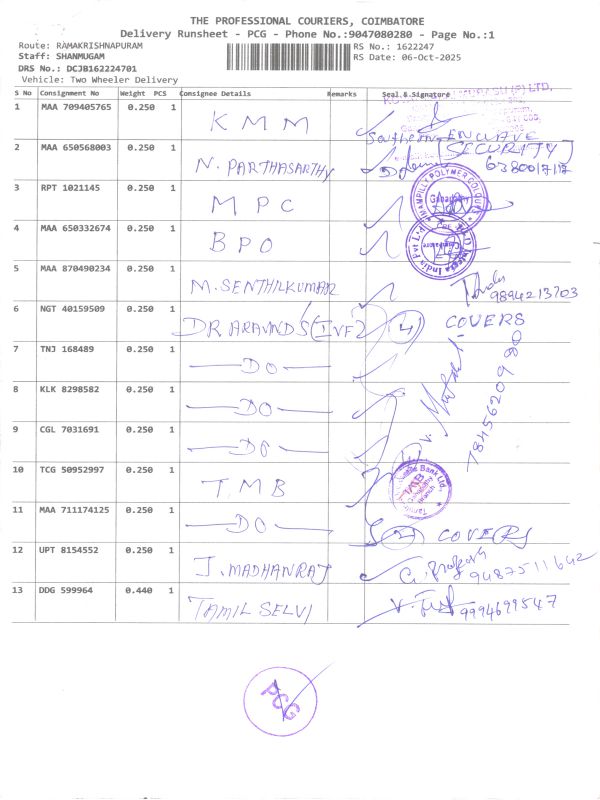 THE PROFESSIONAL COURIERS, COIMBATORE
Delivery Runsheet - PCG - Phone No.:9047080280 - Page No.:1
Route: RAMAKRISHNAPURAM RS No.: 1622247
Staff: SHANMUGAM RS Date: 06-Oct-2025
DRS No.: DCJB162224701
Vehicle: Two Wheeler Delivery
S No Consignment No Weight PCS Consignee Details Remarks Seal & Signature
1 MAA 709405765 0.250 1 KMM
SOUTHERN ENCLAVE
2 MAA 650568003 0.250 1 N. PARTHASARTHY [SECURITY]
3 RPT 1021145 0.250 1 MPC
4 MAA 650332674 0.250 1 BPO
5 MAA 870490234 0.250 1 M. SENTHILKUMAR
9894213703
6 NGT 40159509 0.250 1 DR ARAVINDS (IVF) (4) COVERS
7 TNJ 168489 0.250 1 DO
8 KLK 8298582 0.250 1 DO
9 CGL 7031691 0.250 1 DO
10 TCG 50952997 0.250 1 T.M.B
TMB
11 MAA 711174125 0.250 1 DO (2) COVERS
12 UPT 8154552 0.250 1 J. MADHANRAJ
9487511642
13 DDG 599964 0.440 1 TAMIL SELVI 9994699547
PCG